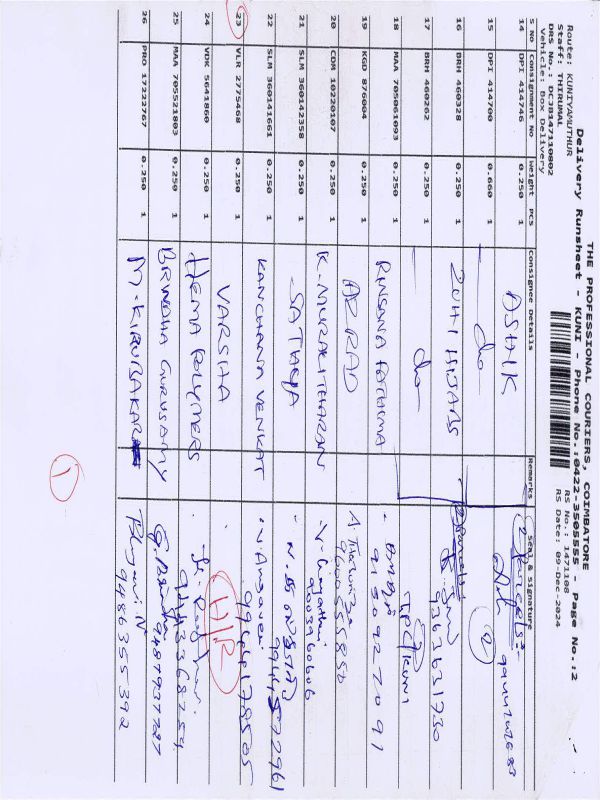 THE PROFESSIONAL COURIERS, COIMBATORE
Delivery Runsheet - KUNI - Phone No.:0422-3505555 - Page No.:2
Route: KUNIYAMUTHUR
Staff: THIRUMAL
DRS No.: DCJB147110802
Vehicle: Box Delivery
RS No.: 1471108
RS Date: 09-Dec-2024
S No Consignment No Weight PCS Consignee Details Remarks Seal & Signature
14 DPI 414746 0.250 1 ASHIK
15 DPI 414700 0.660 1 do
16 BRH 460328 0.250 1 ZUHI HIJABS 9363631730
17 BRH 460262 0.250 1 do
18 MAA 705061093 0.250 1 FATHIMA 9150927091
19 KGD 876004 0.250 1
20 CDM 10220107 0.250 1 K. MURALITHARAN 9003960606
21 SLM 360142358 0.250 1 SATHYA
22 SLM 360141661 0.250 1 KANCHANA VENKAT
23 VLR 2775468 0.250 1 VARSHA H/R
24 VDK 5641860 0.250 1 HEMA POLYMERS
25 MAA 705521803 0.250 1 BRINDHA GURUSAMY 9487937787
26 PRO 17222767 0.250 1 M. KIRUBAKARAN 9486355392
1